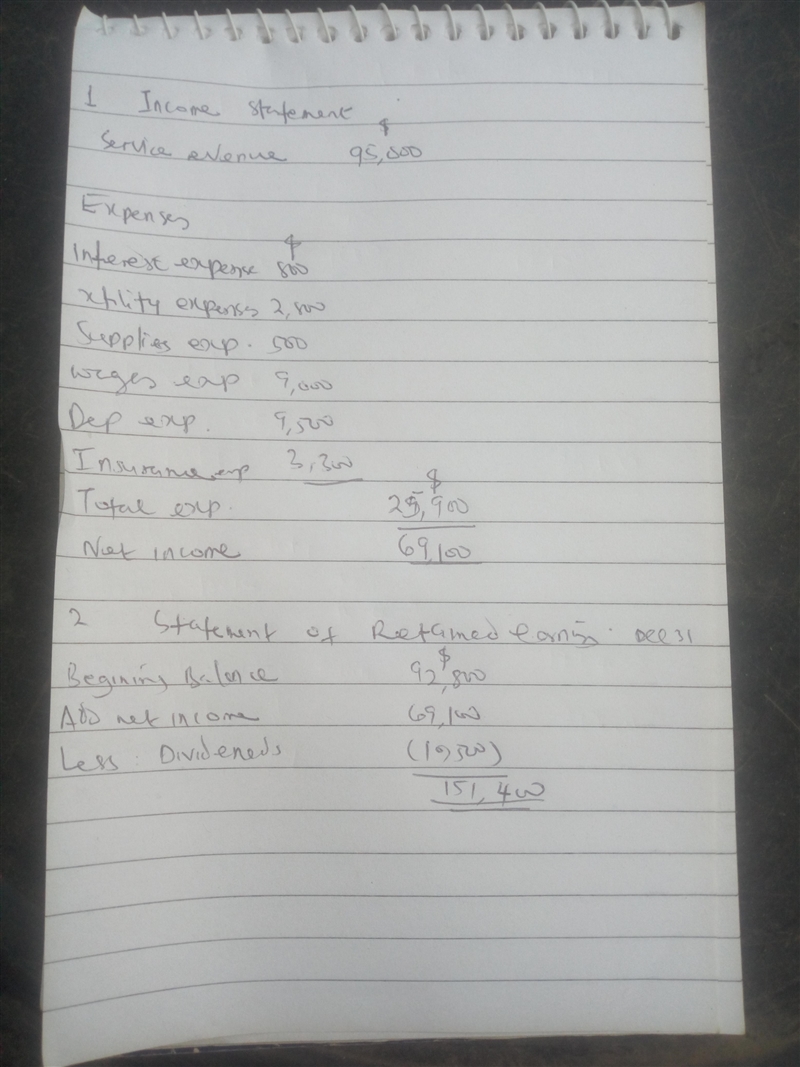 1 Income statement
$
Service evenue 95,000
Expenses
$
Interest expense 800
xtility expenses 2,800
Supplies exp. 500
wages exp 9,000
Dep exp. 9,500
Insurance exp 3,300
$
Total exp. 25,900
Net income 69,100
2 Statement of Retained earning. DEC 31
$
Begining Balance 92,800
ADD net income 69,100
Less: Divideneds (10,500)
151,400